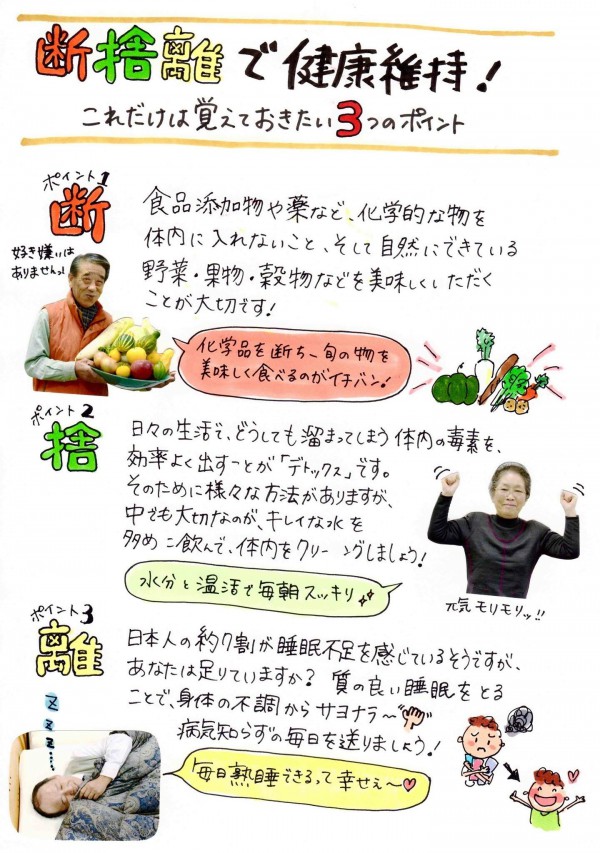 断捨離で健康維持!
これだけは覚えておきたい3つのポイント
ポイント1
断
好き嫌いは
ありませんっ!
食品添加物や薬など、化学的な物を
体内に入れないこと、そして自然にできている
野菜・果物・穀物などを美味しくいただく
ことが大切です!
化学品を断ち、旬の物を
美味しく食べるのがイチバン!
ポイント2
捨
日々の生活で、どうしても溜まってしまう体内の毒素を、
効率よく出すことが「デトックス」です。
そのために様々な方法がありますが、
中でも大切なのが、キレイな水を
多め に飲んで、体内をクリ ーングしましょう!
水分と温活で毎朝スッキリ
元気モリモリッ!!
ポイント3
離
日本人の約7割が睡眠不足を感じているそうですが、
あなたは足りていますか? 質の良い睡眠をとる
ことで、身体の不調からサヨナラ〜
病気知らずの毎日を送りましょう!
ZZZZ....
毎日熟睡できるって幸せぇ〜♡